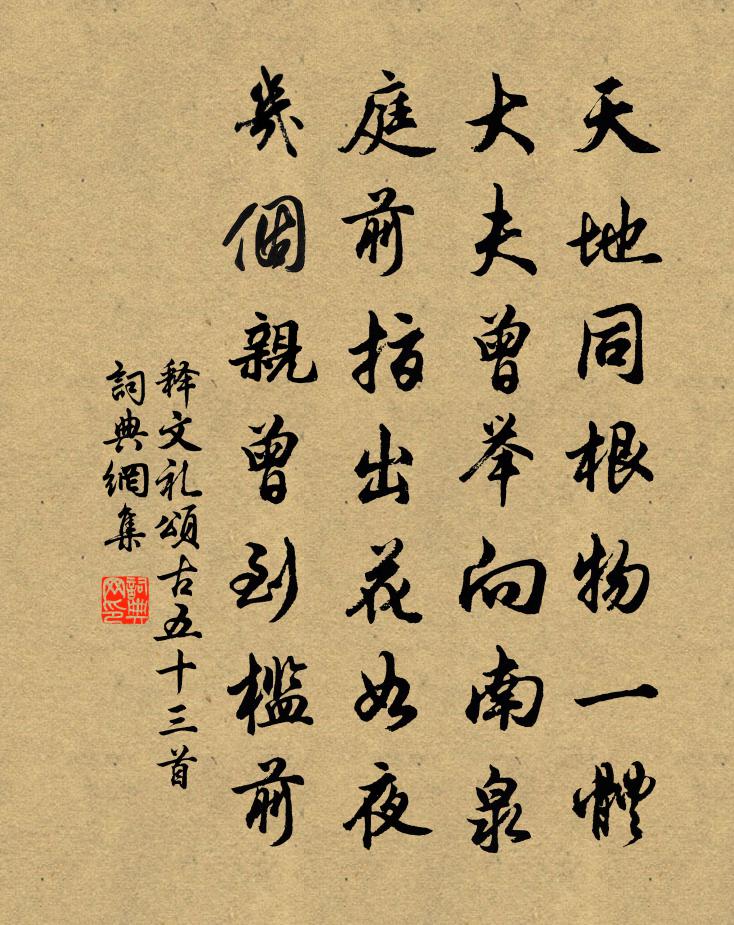 天地同根物一體
大夫曾举向南泉
庭前指出花如夜
幾個親曾到檻前
释文礼頌古五十三首
詞典網集
詞典网印